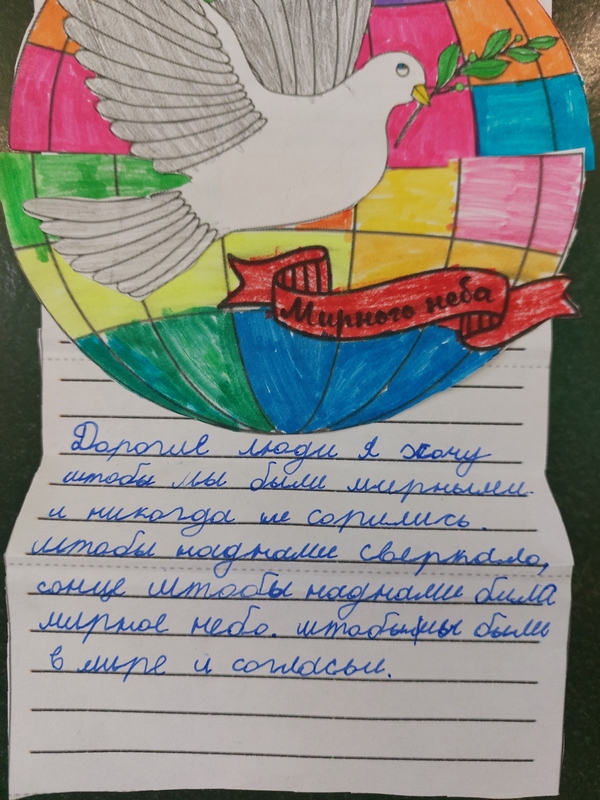 Мирного неба
Дорогие люди я хочу
штобы мы были мирными.
и никогда не сорились.
штобы наднами сверкало,
сонце штобы наднами была
мирное небо. штобы мы были
в мире и согласьи.